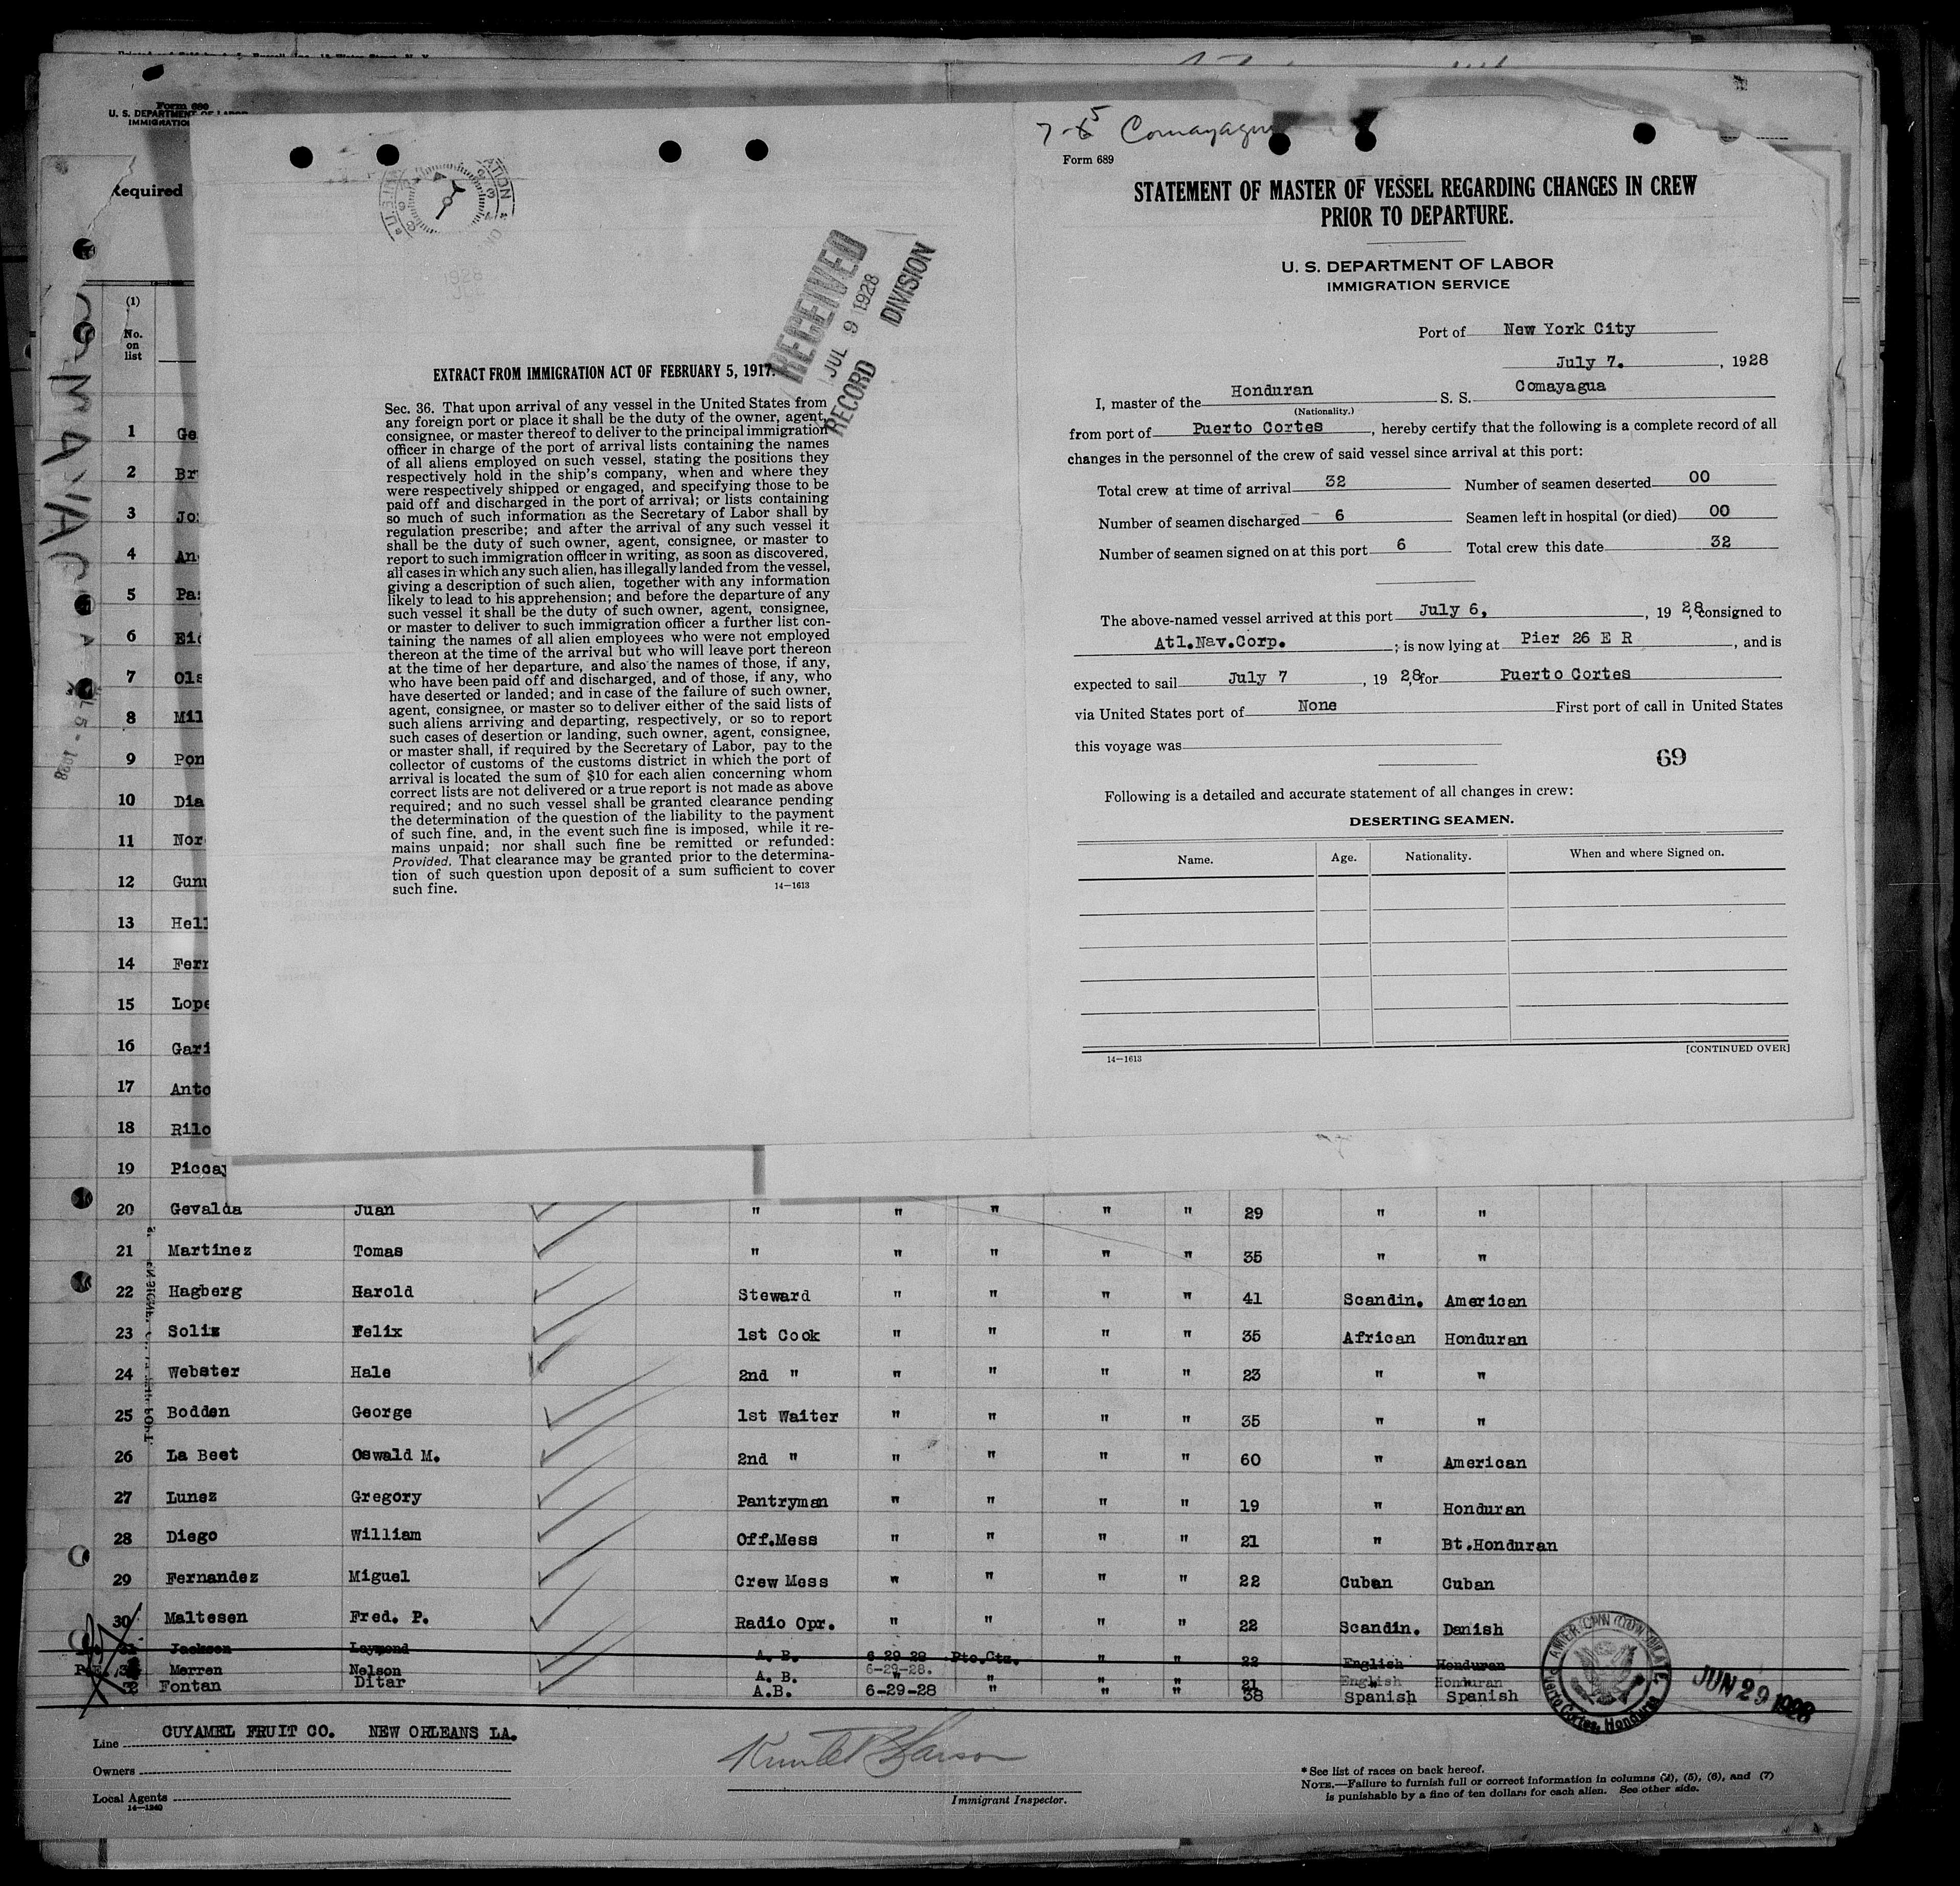 Form 689
U. S. DEPARTMENT OF LABOR
IMMIGRATIO
Required
(1)
No.
on
list
1 Ge
2 Br
3 Jo
4 An
5 Pa
6 Eid
7 Ols
8 Mil
9 Pon
10 Dia
11 Nor
12 Gun
13 Hel
14 Fer
15 Lope
16 Gari
17 Anto
18 Rilo
19 Picca
RECEIVED
JUL 9 1928
RECORD DIVISION
EXTRACT FROM IMMIGRATION ACT OF FEBRUARY 5, 1917.
Sec. 36. That upon arrival of any vessel in the United States from
any foreign port or place it shall be the duty of the owner, agent,
consignee, or master thereof to deliver to the principal immigration
officer in charge of the port of arrival lists containing the names
of all aliens employed on such vessel, stating the positions they
respectively hold in the ship's company, when and where they
were respectively shipped or engaged, and specifying those to be
paid off and discharged in the port of arrival; or lists containing
so much of such information as the Secretary of Labor shall by
regulation prescribe; and after the arrival of any such vessel it
shall be the duty of such owner, agent, consignee, or master to
report to such immigration officer in writing, as soon as discovered,
all cases in which any such alien, has illegally landed from the vessel,
giving a description of such alien, together with any information
likely to lead to his apprehension; and before the departure of any
such vessel it shall be the duty of such owner, agent, consignee,
or master to deliver to such immigration officer a further list con-
taining the names of all alien employees who were not employed
thereon at the time of the arrival but who will leave port thereon
at the time of her departure, and also the names of those, if any,
who have been paid off and discharged, and of those, if any, who
have deserted or landed; and in case of the failure of such owner,
agent, consignee, or master so to deliver either of the said lists of
such aliens arriving and departing, respectively, or so to report
such cases of desertion or landing, such owner, agent, consignee,
or master shall, if required by the Secretary of Labor, pay to the
collector of customs of the customs district in which the port of
arrival is located the sum of $10 for each alien concerning whom
correct lists are not delivered or a true report is not made as above
required; and no such vessel shall be granted clearance pending
the determination of the question of the liability to the payment
of such fine, and, in the event such fine is imposed, while it re-
mains unpaid; nor shall such fine be remitted or refunded:
Provided, That clearance may be granted prior to the determina-
tion of such question upon deposit of a sum sufficient to cover
such fine. 14—1613
7-5 Comayagua
Form 689
STATEMENT OF MASTER OF VESSEL REGARDING CHANGES IN CREW
PRIOR TO DEPARTURE.
U. S. DEPARTMENT OF LABOR
IMMIGRATION SERVICE
Port of New York City
July 7. , 1928
I, master of the Honduran S. S. Comayagua
(Nationality.)
from port of Puerto Cortes, hereby certify that the following is a complete record of all
changes in the personnel of the crew of said vessel since arrival at this port:
Total crew at time of arrival 32 Number of seamen deserted 00
Number of seamen discharged 6 Seamen left in hospital (or died) 00
Number of seamen signed on at this port 6 Total crew this date 32
The above-named vessel arrived at this port July 6, , 19 28, consigned to
Atl.Nav.Corp. ; is now lying at Pier 26 E R , and is
expected to sail July 7 , 19 28, for Puerto Cortes
via United States port of None First port of call in United States
this voyage was
69
Following is a detailed and accurate statement of all changes in crew:
DESERTING SEAMEN.
Name. Age. Nationality. When and where Signed on.
14—1613 [CONTINUED OVER]
20 Gevalda Juan " " " " " 29 " "
21 Martinez Tomas " " " " " 35 " "
22 Hagberg Harold Steward " " " " 41 Scandin. American
23 Soliz Felix 1st Cook " " " " 35 African Honduran
24 Webster Hale 2nd " " " " " 23 " "
25 Bodden George 1st Waiter " " " " 35 " "
26 La Beet Oswald M. 2nd " " " " " 60 " American
27 Lunez Gregory Pantryman " " " " 19 " Honduran
28 Diego William Off.Mess " " " " 21 " Bt.Honduran
29 Fernandez Miguel Crew Mess " " " " 22 Cuban Cuban
30 Maltesen Fred. P. Radio Opr. " " " " 22 Scandin. Danish
31 Jackson Laymond A. B. 6-29-28 Pto.Ctz. " " 22 English Honduran
Merren Nelson A. B. 6-29-28. " " " 21 English Honduran
32 Fontan Ditar A.B. 6-29-28 " " " 38 Spanish Spanish
AMERICAN CONSULATE
Puerto Cortes, Honduras
JUN 29 1928
Line CUYAMEL FRUIT CO. NEW ORLEANS LA.
Owners
Local Agents
14—1240
Immigrant Inspector.
* See list of races on back hereof.
NOTE.—Failure to furnish full or correct information in columns (4), (5), (6), and (7)
is punishable by a fine of ten dollars for each alien. See other side.